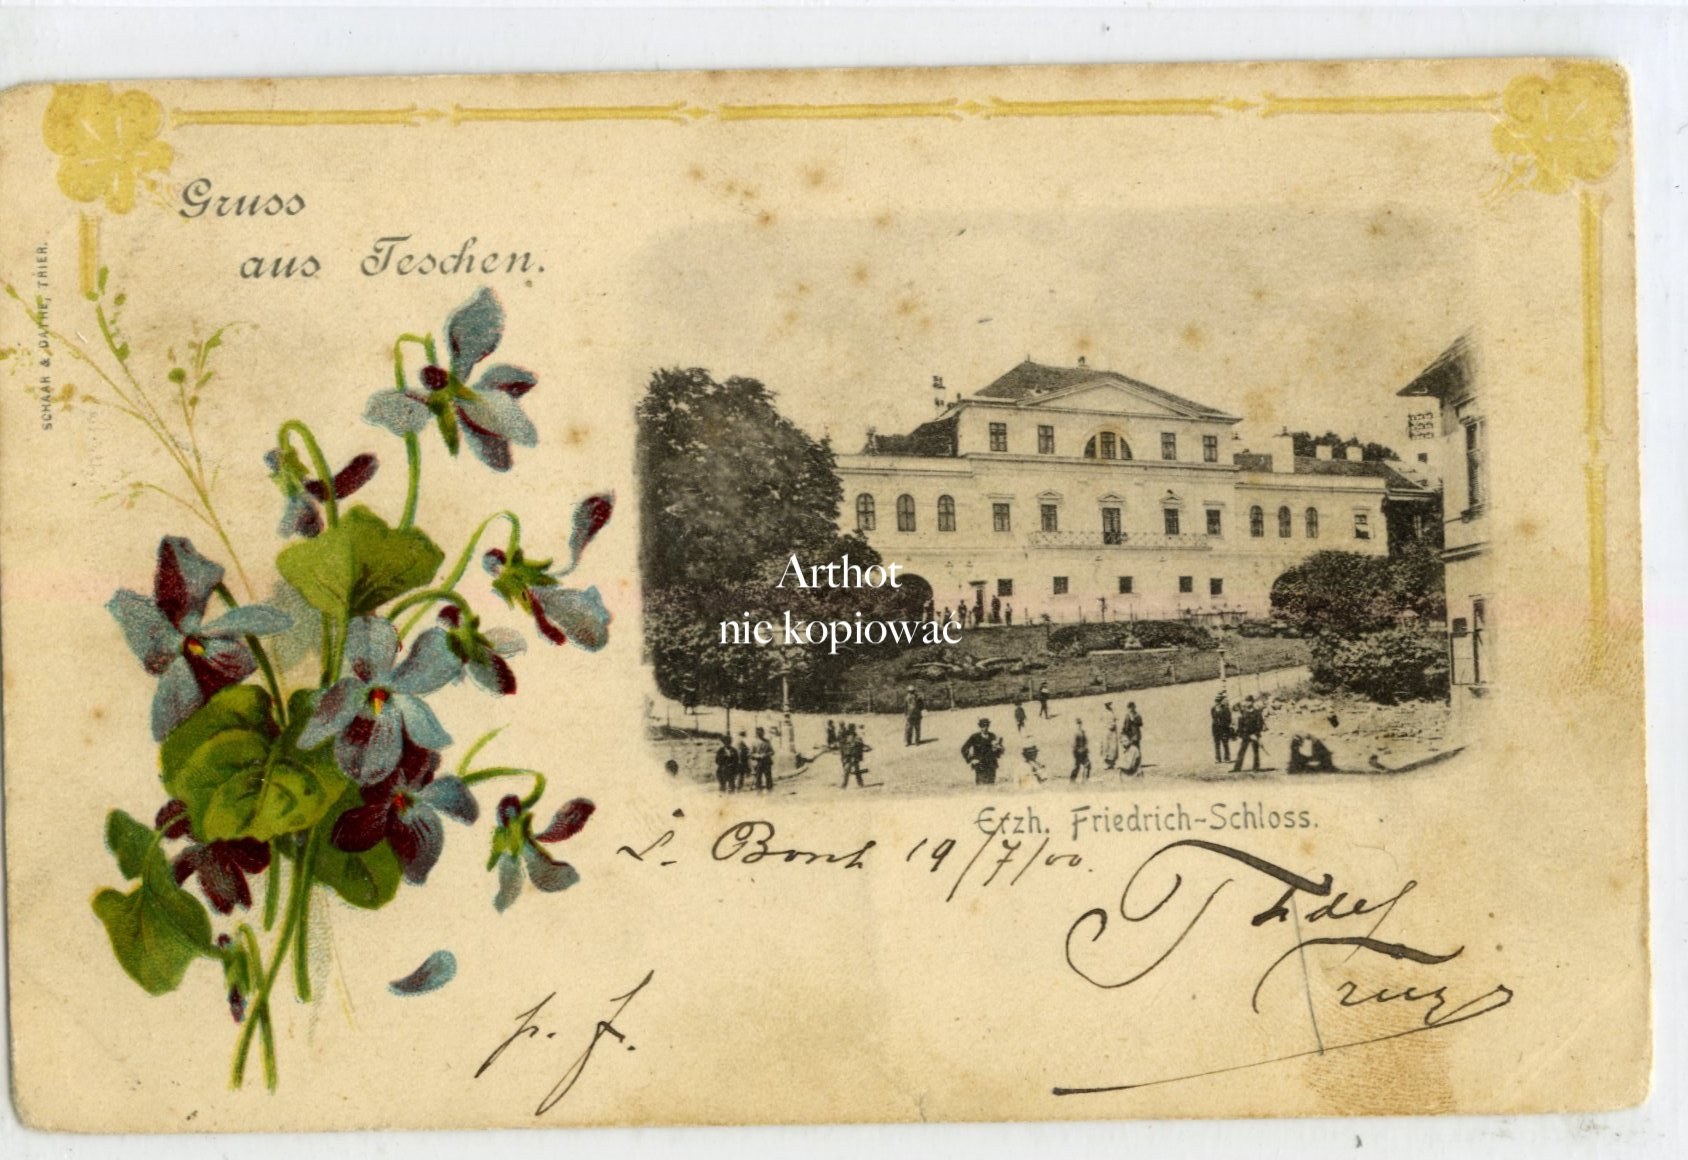 Gruss
aus Teschen.
SCHAAR & DATHE, TRIER.
Arthot
nie kopiować
Erzh. Friedrich-Schloss.
19/7/00.
p. f.